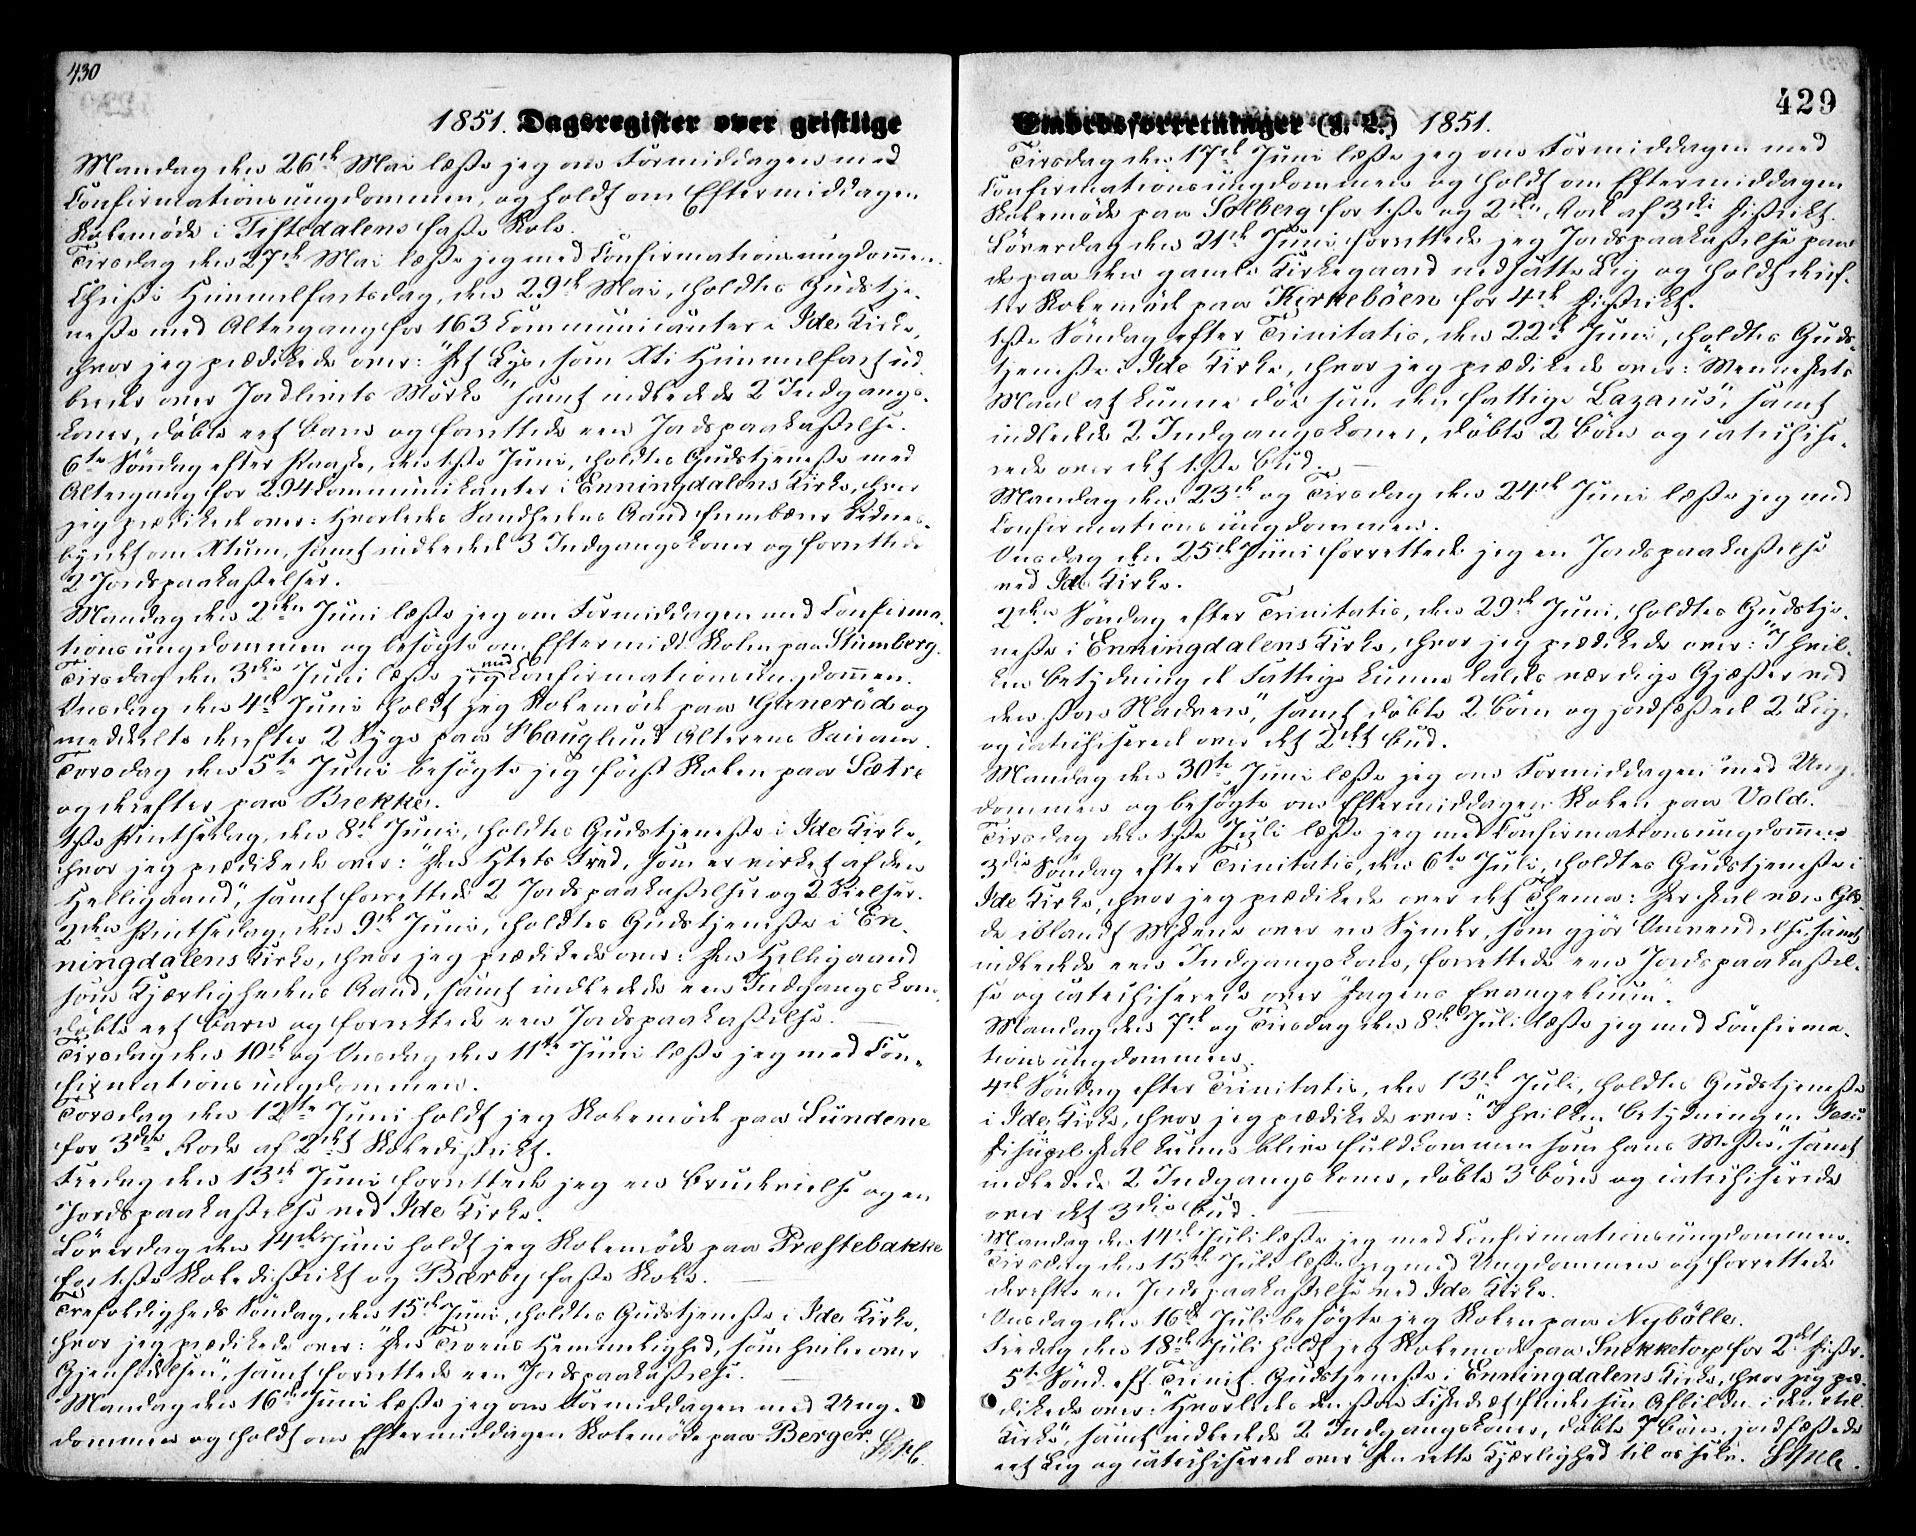 430
1851. Dagsregister over geistlige
Mandag den 26de Mai læste jeg om Formiddagen med
Confirmationsungdommen, og holdt om Eftermiddagen
Skolemöde i Tistedalens faste Skole.
Tirsdag den 27de Mai læste jeg med Confirmationsungdom̅en.
Christi Himmelfartsdag, den 29de Mai, holdtes Gudstje-
neste med Altergang for 163 Communicanter i Ide Kirke,
hvor jeg prædikede over: "Det Lys, som Xti Himmelfart ud
breder over Jordlivets Mörke" samt indledede 2 Indgangs-
koner, döbte eet Barn og forrettede een Jordspaakastelse.
6te Söndag efter Paaske, den 1ste Juni, holdtes Gudstjeneste med
Altergang for 294 Communikanter i Enningdalens Kirke, hvor
jeg prædikede over: Hvorledes Sandhedens Aand frembærer Vidnes-
byrdet om Xtum, samt indledede 3 Indgangskoner og forrettede
2 Jordspaakastelser.
Mandag den 2den Juni læste jeg om Formiddagen med Confirma-
tionsungdommen og besögte om Eftermidd. Skolen paa Stumberg.
Tirsdag den 3die Juni læste jeg med Confirmationsungdom̅en.
Onsdag den 4de Juni holdt jeg Skolemöde paa Guneröd og
meddelte derefter 2 Syge paa Hauglund Alterens Sacram.
Torsdag den 5te Juni besögte jeg först Skolen paa Sætre
og derefter paa Brekke.
1ste Pintsedag, den 8de Juni, holdtes Gudstjeneste i Ide Kirke,
hvor jeg prædikede over: "Den Xtets Fred, som er virket af den
Helligaand", samt forrettede 2 Jordspaakastelser og 2 Vielser.
2den Pintsedag, den 9de Juni, holdtes Gudstjeneste i En-
ningdalens Kirke, hvor jeg prædikede over: Den Helligaand
som Kjærlighedens Aand, samt indledede een Indgangskone,
döbte eet Barn og forrettede een Jordspaakastelse.
Tirsdag den 10de og Onsdag den 11te Juni læste jeg med Con-
firmationsungdommen.
Torsdag den 12te Juni holdt jeg Skolemöde paa Lundene
for 3die Rode af 2det Skoledistrikt.
Fredag den 13de Juni forrettede jeg en Brudevielse og en
Jordspaakastelse ved Ide Kirke.
Löverdag den 14de Juni holdt jeg Skolemöde paa Præstebakke
for 1ste Skoledistrikt og Bærby faste Skole.
Trefoldigheds Söndag, den 15de Juni, holdtes Gudstjeneste i Ide Kirke,
hvor jeg prædikede over: "Den Troens Hemmelighed, som hviler over
Gjenfödelsen", samt forrettede een Jordspaakastelse.
Mandag den 16de Juni læste jeg om Formiddagen med Ung-
dommen og holdt om Eftermiddagen Skolemöde paa Berger.
429
Embedsforretninger (s. L.) 1851.
Tirsdag den 17de Juni læste jeg om Formiddagen med
Confirmationsungdommen og holdt om Eftermiddagen
Skolemöde paa Solberg for 1ste og 2den Rode af 3die Distrikt.
Löverdag den 21de Juni forrettede jeg Jordspaakastelse paa
de paa den gamle Kirkegaard nedsatte Lig og holdt deref-
ter Skolemöde paa Kirkeböen for 4de Distrikt.
1ste Söndag efter Trinitatis, den 22de Juni, holdtes Guds-
tjeneste i Ide Kirke, hvor jeg prædikede over: "Menneskets
Maal at kunne döe som den fattige Lazarus", samt
indledede 2 Indgangskoner, döbte 2 Börn og catechise-
rede over det 1ste Bud.
Mandag den 23de og Tirsdag den 24de Juni læste jeg med
Confirmationsungdommen.
Onsdag den 25de Juni forrettede jeg en Jordspaakastelse
ved Ide Kirke.
2den Söndag efter Trinitatis, den 29de Juni, holdtes Gudstje-
neste i Enningdalens Kirke, hvor jeg prædikede over: "I hvil-
ken Betydning de Fattige kunne kaldes værdige Gjæster ved
den store Nadvere", samt döbte 2 Börn og jordfæstede 2 Lig
og catechiserede over det 2det Bud.
Mandag den 30te Juni læste jeg om Formiddagen med Ung-
dommen og besögte om Eftermiddagen Skolen paa Vold.
Tirsdag den 1ste Juli læste jeg med Confirmationsungdom̅en.
3die Söndag efter Trinitatis, den 6te Juli, holdtes Gudstjeneste i
Ide Kirke, hvor jeg prædikede over det Thema: Der skal være Glæ-
de iblandt Englene over en Synder, som gjör Omvendelse, samt
indledede een Indgangskone, forrettede een Jordspaakastel-
se og catechiserede over Dagens Evangelium.
Mandag den 7de og Tirsdag den 8de Juli læste jeg med Confirma-
tionsungdommen.
4de Söndag efter Trinitatis, den 13de Juli, holdtes Gudstjeneste
i Ide Kirke, hvor jeg prædikede over: "I hvilken Betydning en Jesu
Discipel skal kunne blive fuldkommen som hans Mester", samt
indledede 2 Indgangskoner, döbte 3 Börn og catechiserede
over det 3die Bud.
Mandag den 14de Juli læste jeg med Confirmationsungdommen.
Tirsdag den 15de Juli læste jeg med Ungdommen og forrettede
derefter en Jordspaakastelse ved Ide Kirke.
Onsdag den 16de Juli besögte jeg Skolen paa Nybölle.
Fredag den 18de Juli holdt jeg Skolemöde paa Snekketorp for 2det Distr.
5te Sönd. eft. Trinit. Gudstjeneste i Enningdalens Kirke, hvor jeg præ-
dikede over: "Hvorledes den store Fiskedræt finder sin Afbildn. i den xtel.
Kirke" samt indledede 2 Indgangskoner, döbte 7 Börn, jordfæstede
eet Lig og catechiserede over den rette Kjærlighed til os selv.